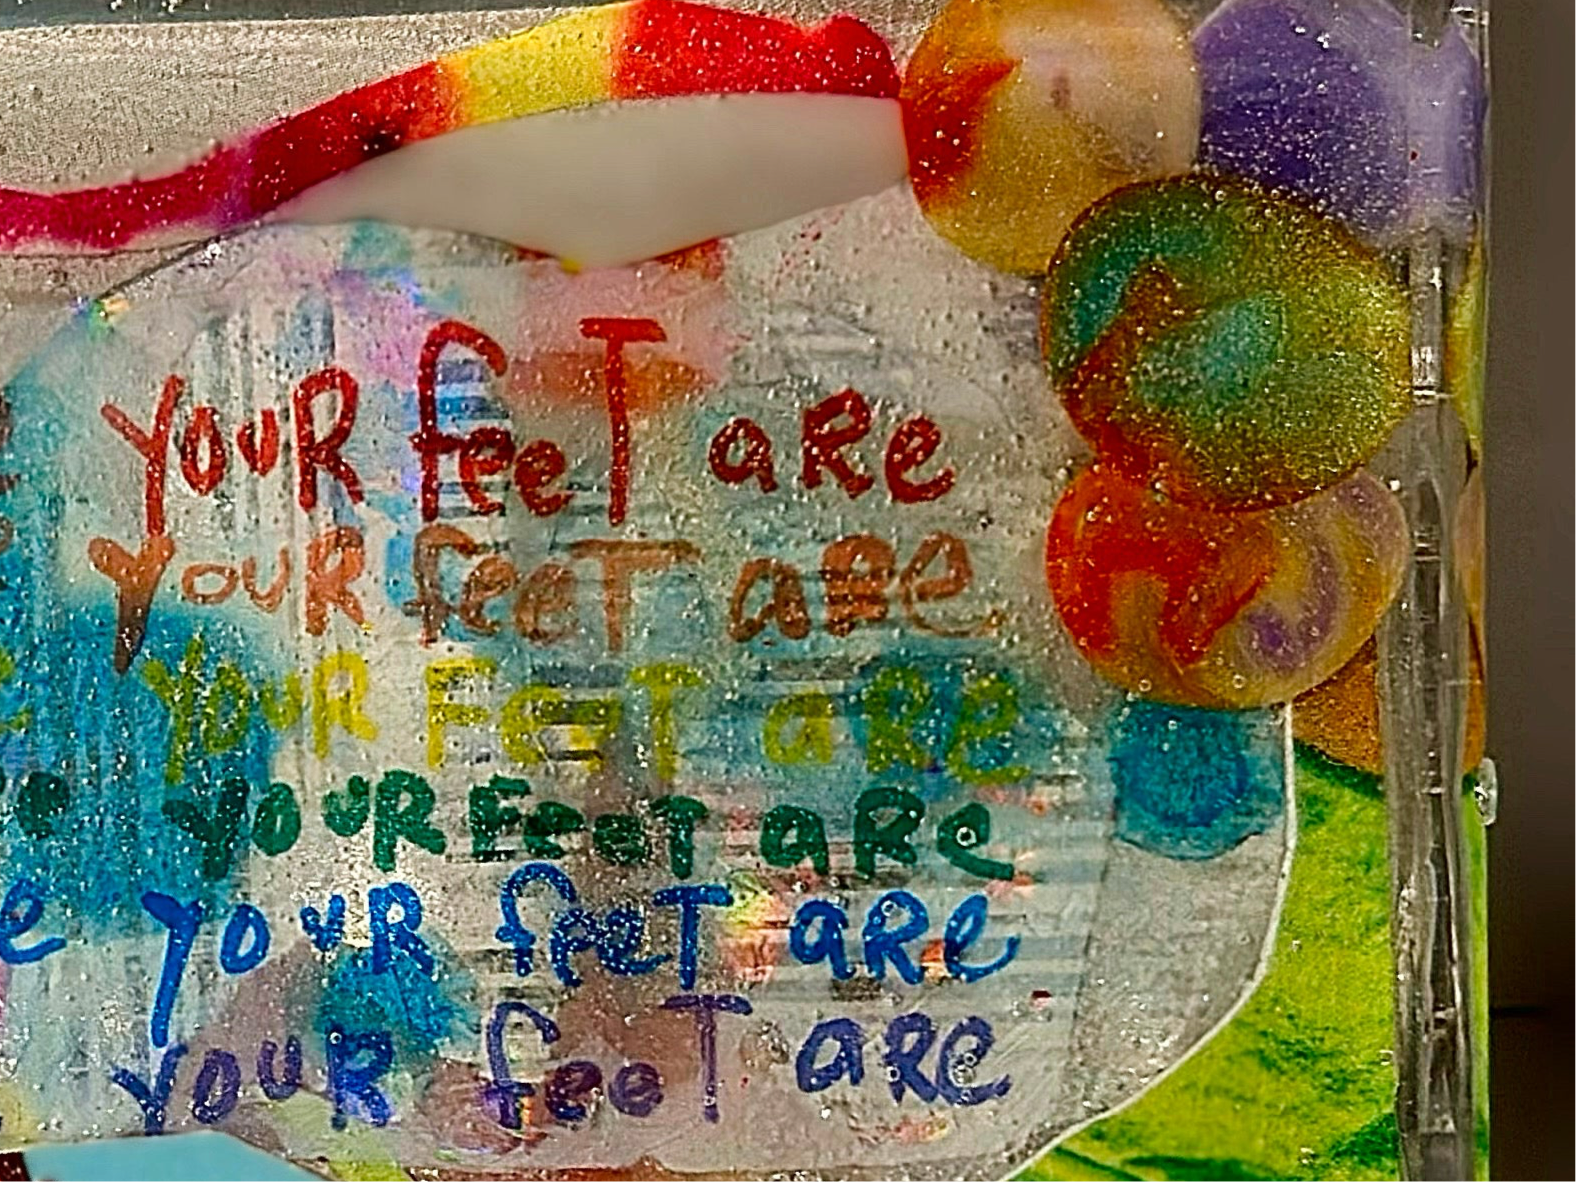 YOUR feeT aRe
YOUR feeT aRe
YOUR FeeT aRe
YOUR FeeT aRe
e YOUR feeT aRe
YOUR feeT aRe